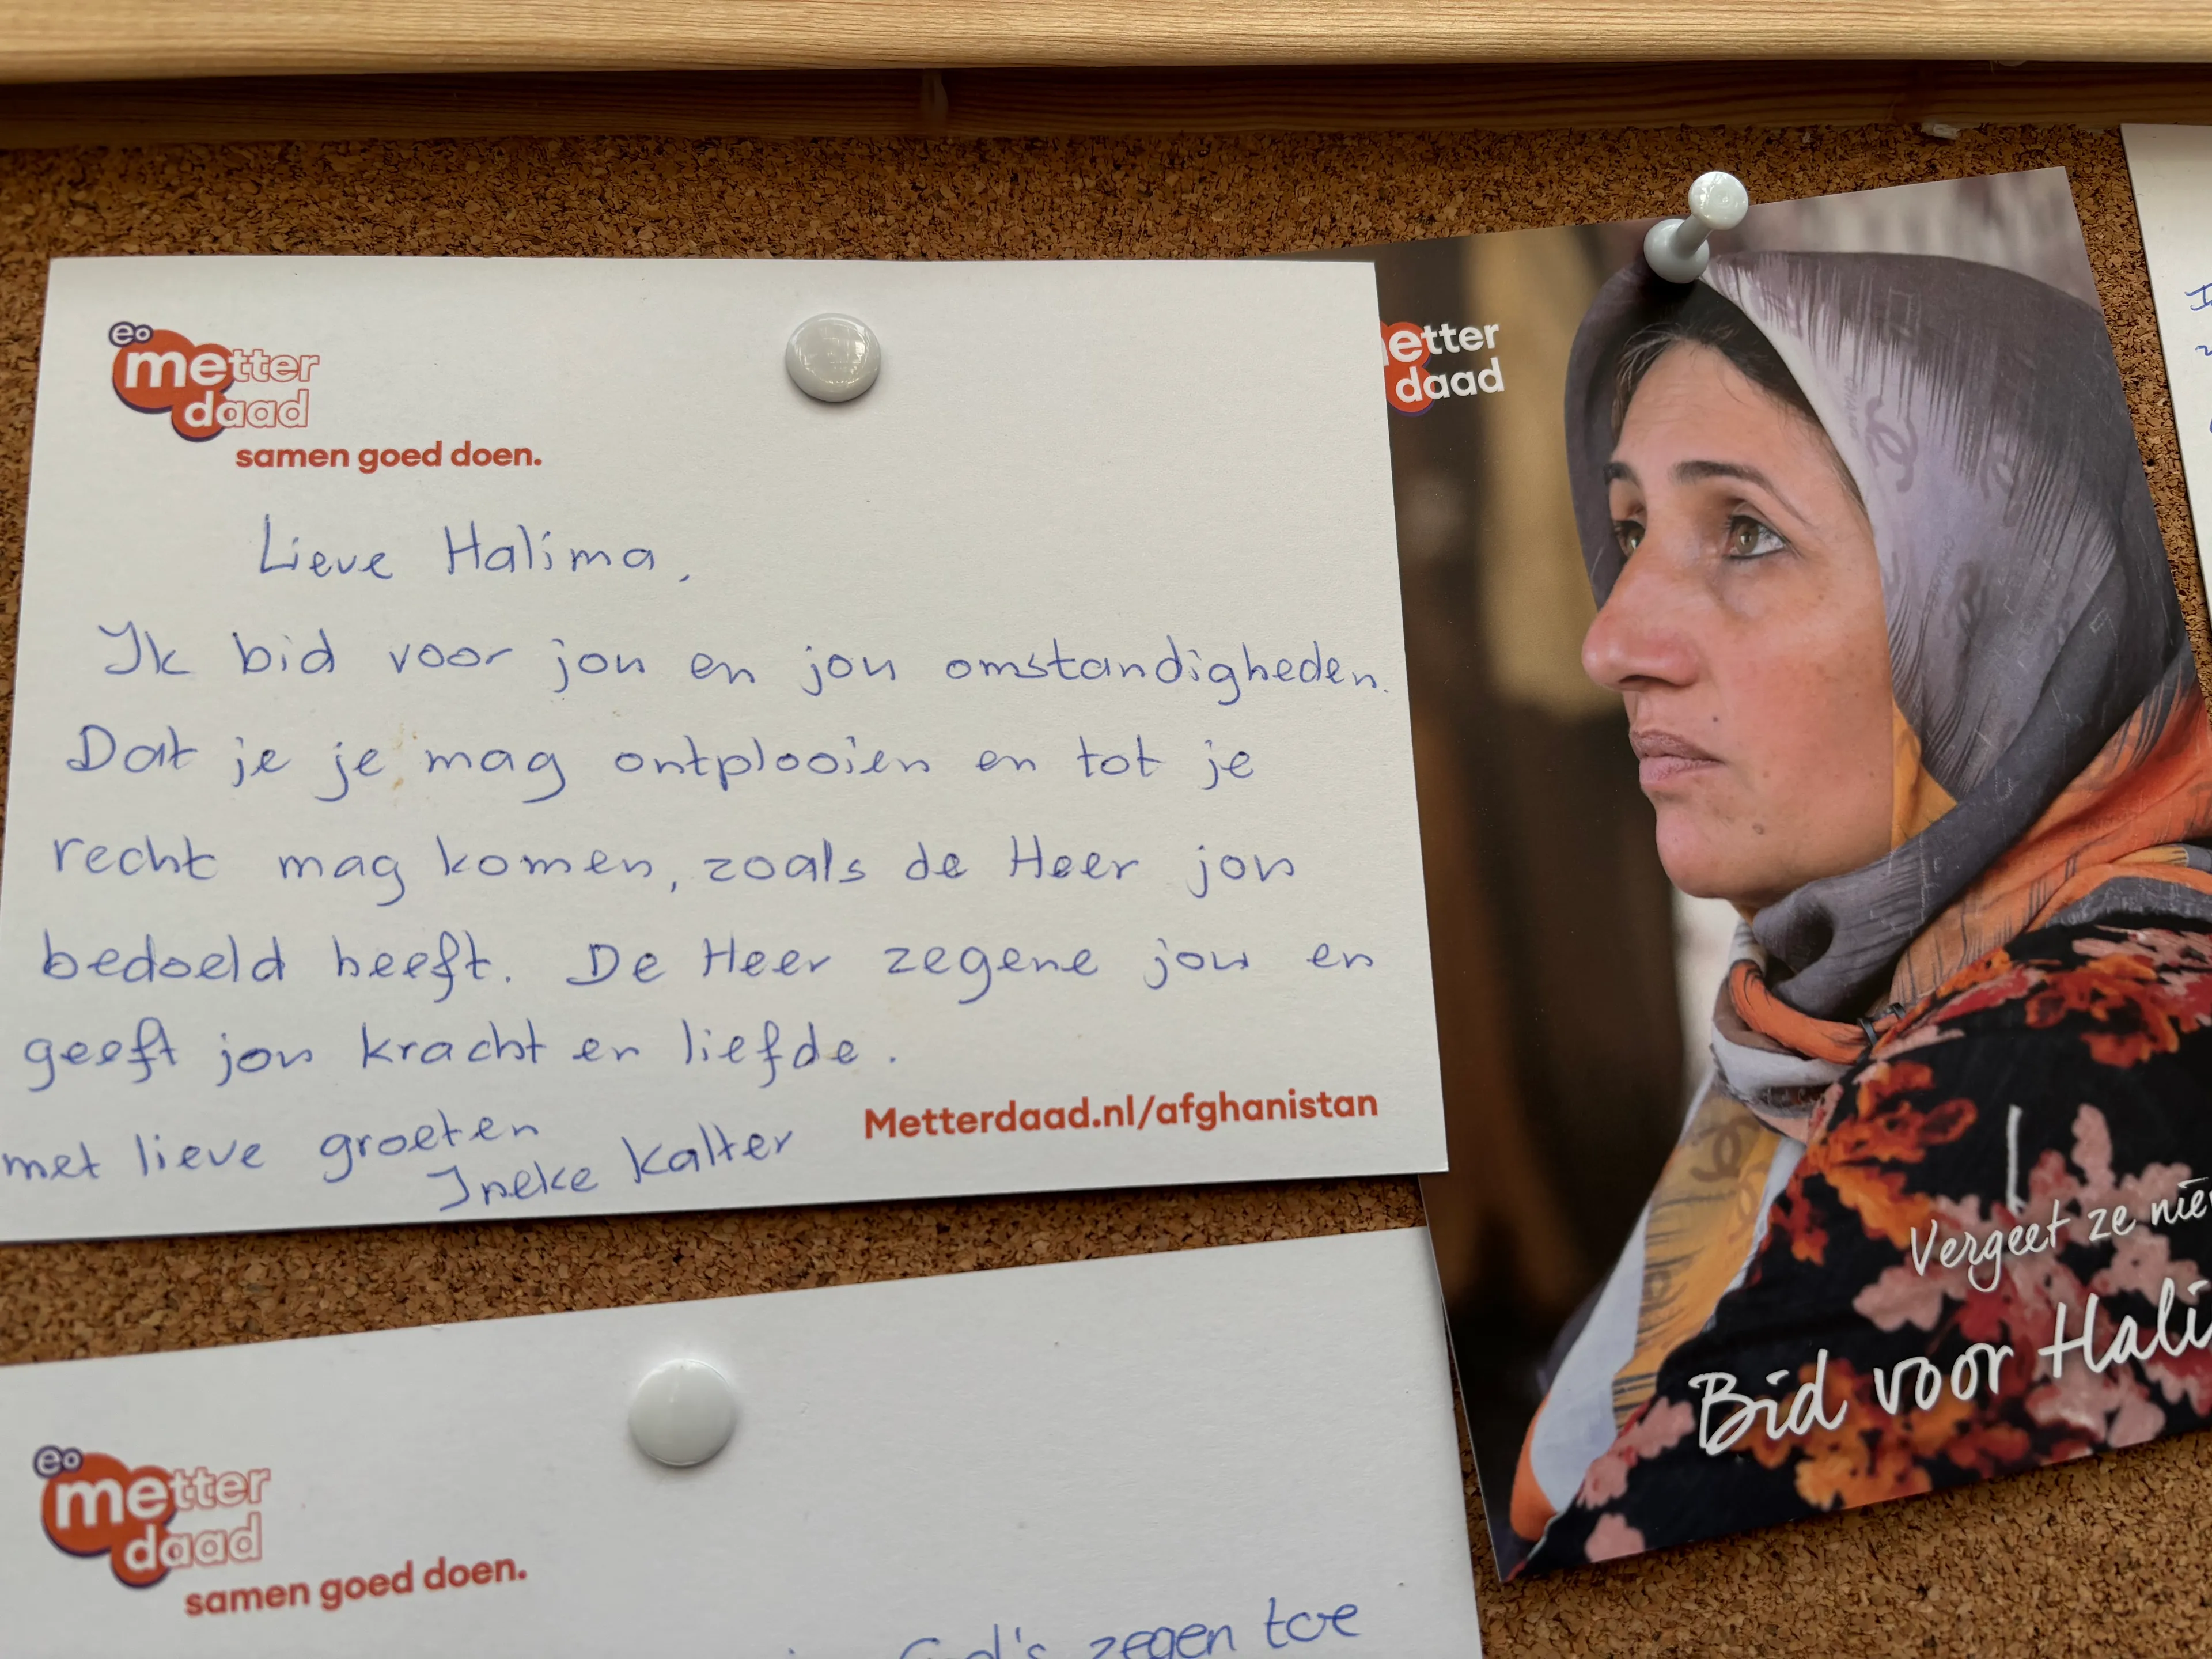 eo
metter
daad
samen goed doen.
Lieve Halima,
Ik bid voor jou en jou omstandigheden.
Dat je je mag ontplooien en tot je
recht mag komen, zoals de Heer jou
bedoeld heeft. De Heer zegene jou en
geeft jou kracht en liefde.
met lieve groeten
Ineke Kalter
Metterdaad.nl/afghanistan
etter
daad
Vergeet ze nie
Bid voor Hali
eo
metter
daad
samen goed doen.
God's zegen toe